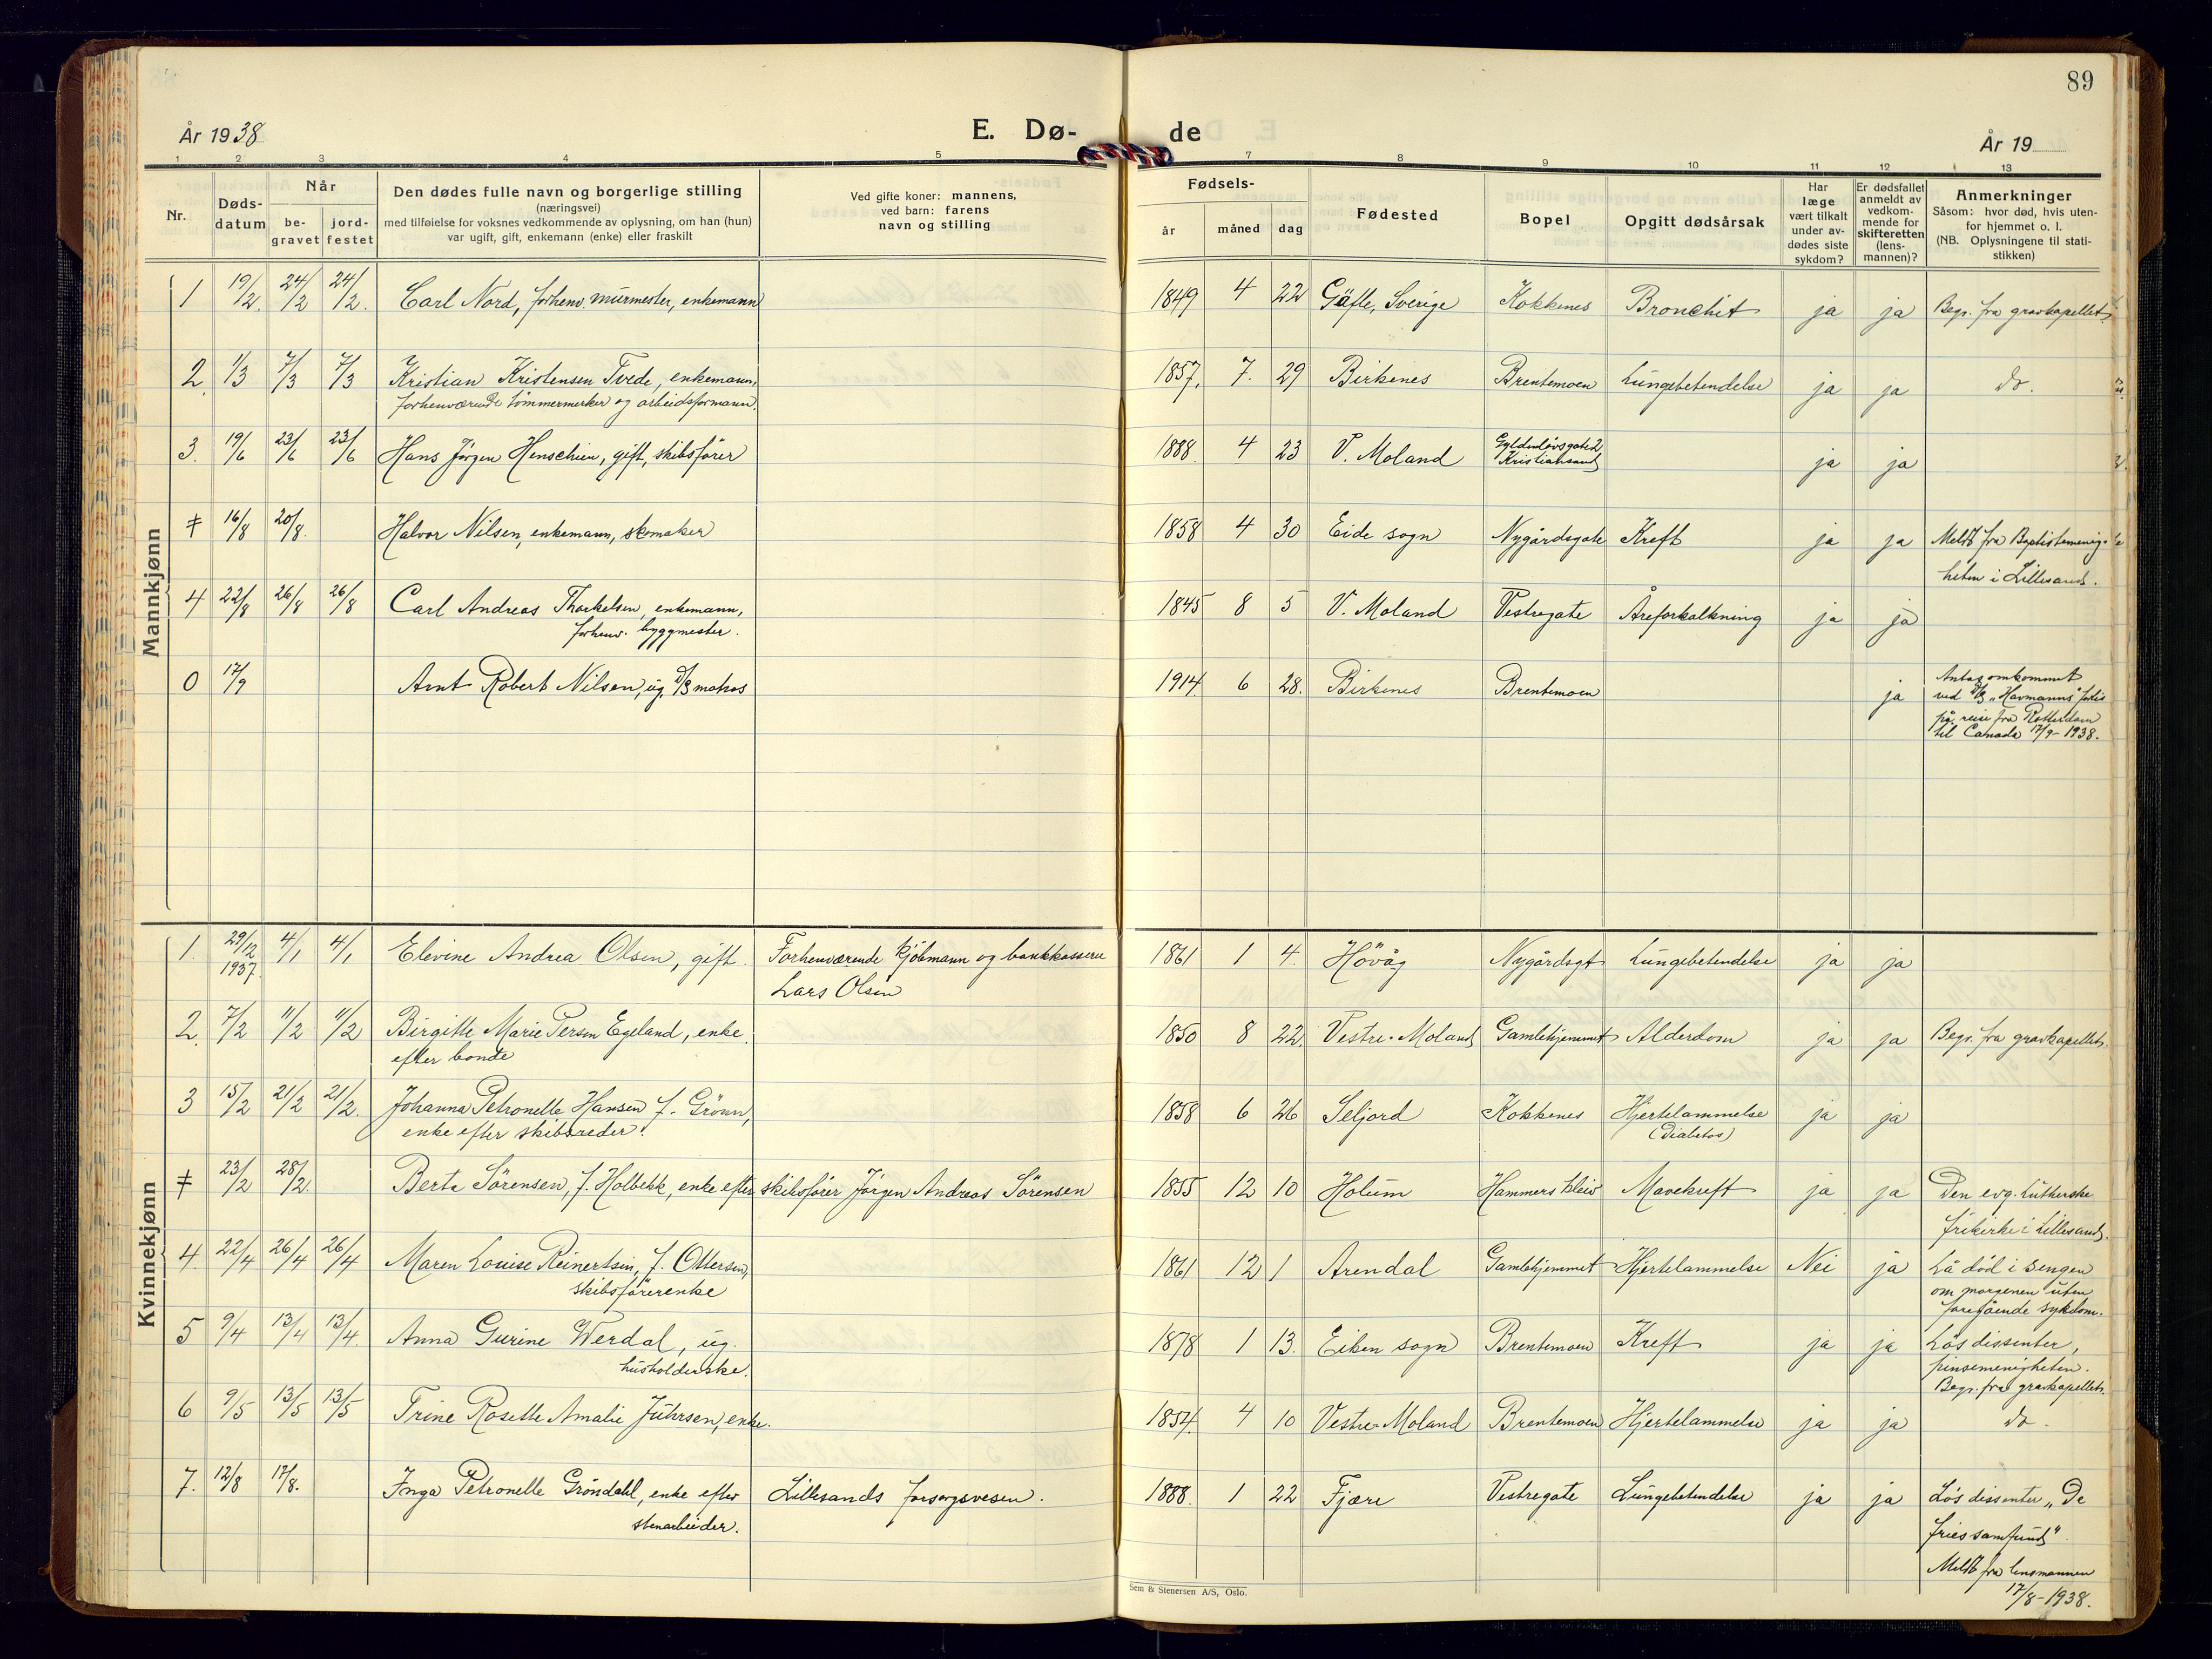 89
År 1938
E. Dø-
de
År 19
1 2 3 4 5 7 8 9 10 11 12 13
Nr.
Døds-
datum
Når
be-
gravet
jord-
festet
Den dødes fulle navn og borgerlige stilling
(næringsvei)
med tilføielse for voksnes vedkommende av oplysning, om han (hun)
var ugift, gift, enkemann (enke) eller fraskilt
Ved gifte koner: mannens,
ved barn: farens
navn og stilling
Fødsels-
år måned dag
Fødested
Bopel
Opgitt dødsårsak
Har
læge
vært tilkalt
under av-
dødes siste
sykdom?
Er dødsfallet
anmeldt av
vedkom-
mende for
skifteretten
(lens-
mannen)?
Anmerkninger
Såsom: hvor død, hvis uten-
for hjemmet o. l.
(NB. Oplysningene til stati-
stikken)
Mannkjønn
1 19/12. 24/2 24/2. Carl Nord, forhenv. murmester, enkemann 1849 4 22 Gäfle, Sverige Kokkenes Bronchit ja ja Begr. fra gravkapellet.
2. 1/3 7/3 7/3 Kristian Kristensen Tvede, enkemann, 1857. 7. 29 Birkenes Brentemoen Lungebetendelse ja ja do.
forhenværende tömmermerker og arbeidsformann.
3. 19/6 23/6 23/6 Hans Jørgen Henschien, gift, skibsfører 1888 4 23 V. Moland Gyldenløvsgate 2 ja ja
Kristiansand
‡ 16/8 20/8. Halvor Nilsen, enkemann, skomaker 1858 4 30 Eide sogn Nygårdsgate Kreft ja ja Meldt fra Baptistmenig-
heten i Lillesand.
4 22/8 26/8 26/8 Carl Andreas Thorkelsen, enkemann, 1845 8 5 V. Moland Vestregate Åreforkalkning ja ja
forhenv. byggmester.
0 17/9 Arnt Robert Nilsen, ug. D/S matros 1914. 6 28. Birkenes Brentemoen ja Antas omkommet
ved D/S "Havmanns" forlis
på reise fra Rotterdam
til Canada 17/9-1938.
Kvinnekjønn
1. 29/12 1937. 4/1 4/1 Elevine Andrea Olsen, gift. Forhenværende kjöbmann og bankkasserer 1861 1 4. Hövåg Nygårdsgt Lungebetendelse ja ja
Lars Olsen
2. 7/2 11/2 11/2 Birgitte Marie Persen Egeland, enke. 1850 8 22. Vestre-Moland Gamlehjemmet Alderdom ja ja Begr. fra gravkapellet.
efter bonde
3 15/2 21/2 21/2. Johanna Petronelle Hansen f. Grönn, 1858 6 26 Seljord Kokkenes Hjertelammelse ja ja
enke efter skibsreder. (Diabetes)
‡ 23/2 28/2. Berta Sörensen, f. Holbekk, enke efter skibsfører Jörgen Andreas Sörensen 1855 12 10 Holum Hammers kleiv Mavekreft ja ja Den evg. Lutherske
frikirke i Lillesand.
4. 22/4 26/4 26/4 Maren Louise Reinertsen, f. Ottersen, 1861 12 1 Arendal Gamlehjemmet Hjertelammelse Nei ja Lå död i sengen
skibsförerenke om morgenen uten
foregående sykdom.
5 9/4 13/4 13/4. Anna Gurine Werdal, ug. 1878 1 13. Eiken sogn Brentemoen Kreft ja ja Lös dissenter,
husholderske. pinsemenigheten.
Begr. fra gravkapellet.
6 9/5 13/5 13/5 Trine Rosette Amalie Juhrsen, enke. 1854. 4 10 Vestre-Moland Brentemoen Hjertelammelse ja ja do.
7. 12/8 17/8. Inga Petronelle Gröndahl, enke efter Lillesands forsorgsvesen. 1888. 1 22 Fjære Vestregate Lungebetendelse ja ja Lös dissenter "De
stenarbeider. fries samfund".
Meldt fra lensmannen
17/8-1938.
Sem & Stenersen A/S, Oslo.